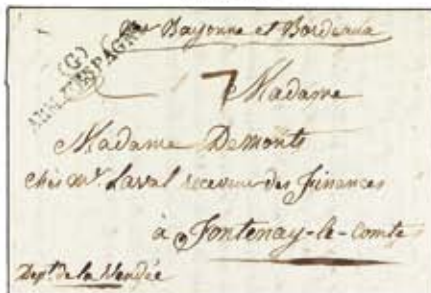 par Bayonne et Bordeaux
(G)
ARM. D'ESPAGNE
7 Madame
Madame Demonts
chés Mr. Laval receveur des finances
à Fontenay-le-Comte
Dept. de la Vendée